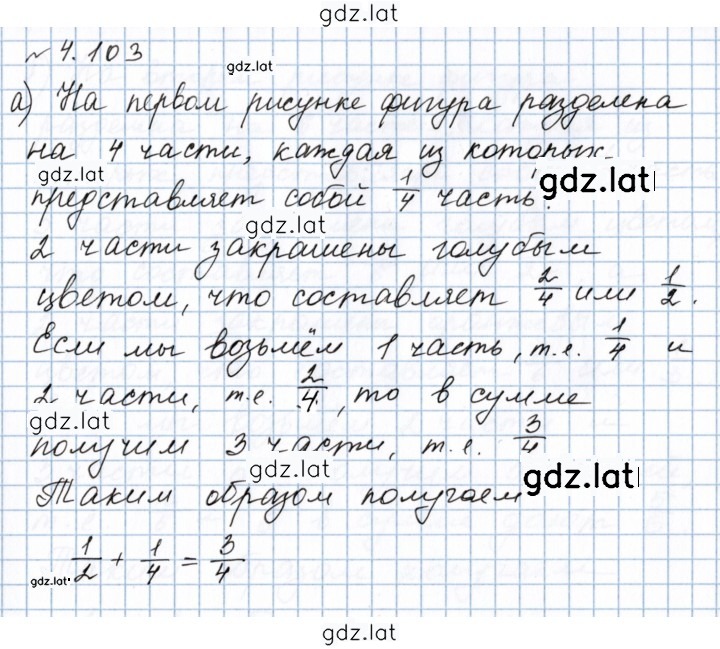 gdz.lat
№ 4.103
gdz.lat
а) На первом рисунке фигура разделена
на 4 части, каждая из которых
gdz.lat
gdz.lat
представляет собой 1/4 часть.
gdz.lat
2 части закрашены голубым
цветом, что составляет 2/4 или 1/2.
Если мы возьмём 1 часть, т.е. 1/4 и
2 части, т.е. 2/4, то в сумме
gdz.lat
получим 3 части, т.е. 3/4
gdz.lat
gdz.lat
Таким образом получаем
1/2 + 1/4 = 3/4
gdz.lat
gdz.lat